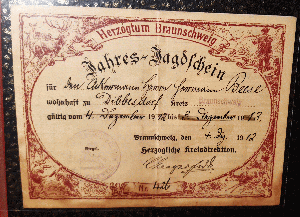 Herzogtum Braunschweig
Jahres-Jagdschein
für den Ackermann Herrn Hermann Beese
wohnhaft zu Dibbesdorf Kreis Braunschweig
gültig vom 4. Dezember 1912 bis Dezember 1913.
Braunschweig, den 4. Dez. 1912
Herzogliche Kreisdirektion.
Siegel.
Nr. 426